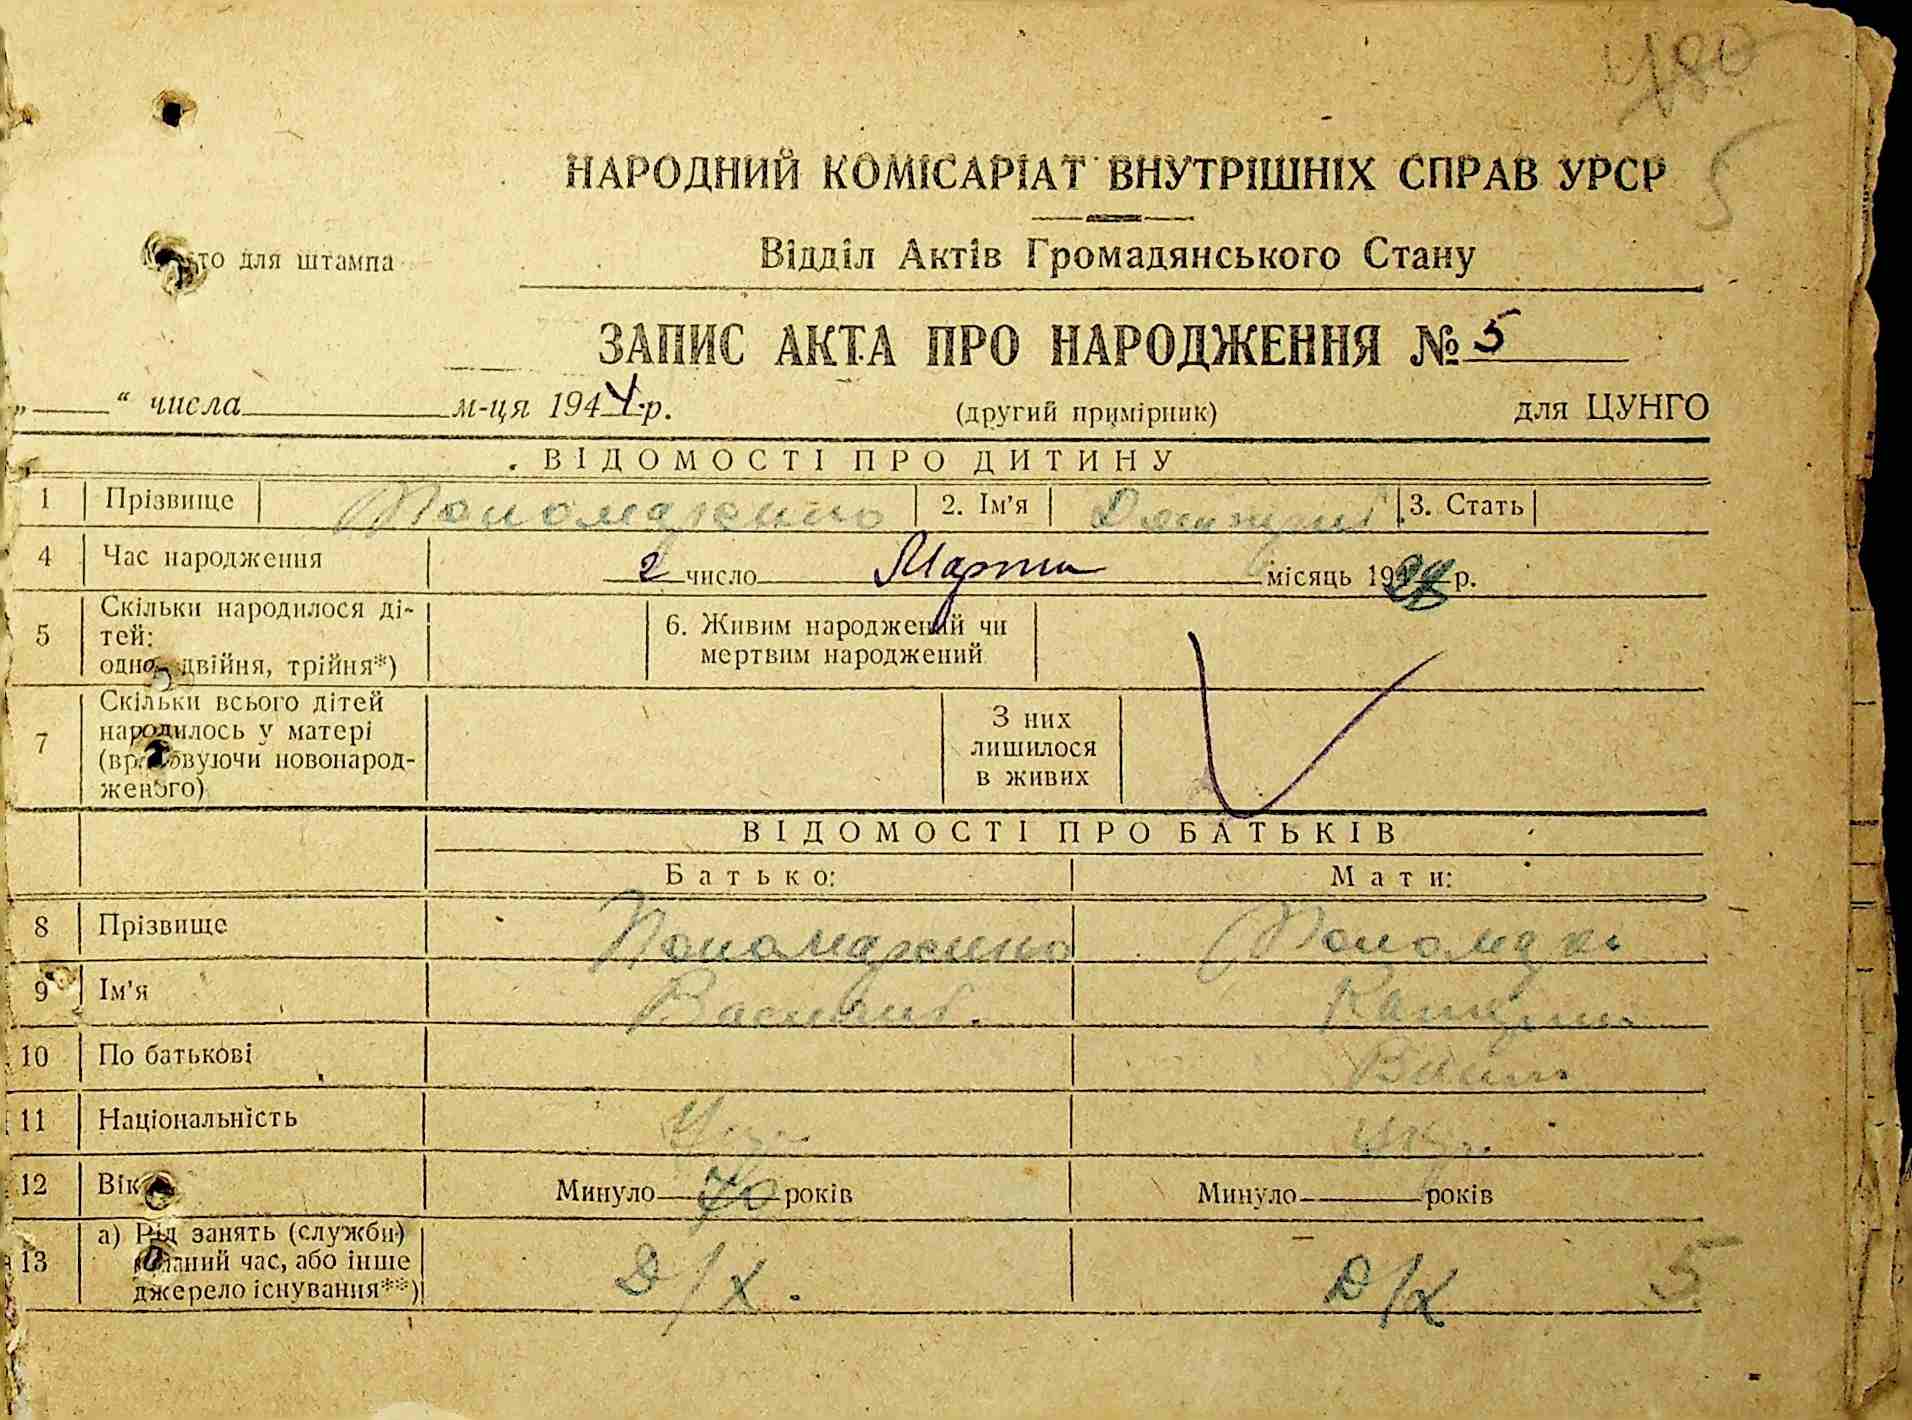 480
5
НАРОДНИЙ КОМІСАРІАТ ВНУТРІШНІХ СПРАВ УРСР
то для штампа
Відділ Актів Громадянського Стану
ЗАПИС АКТА ПРО НАРОДЖЕННЯ № 5
„ “ числа м-ця 1944 р. (другий примірник) для ЦУНГО
ВІДОМОСТІ ПРО ДИТИНУ
1 Прізвище Пономаренко 2. Ім'я Дмитрий 3. Стать
4 Час народження 2 число Марта місяць 19 р.
5 Скільки народилося ді-
тей:
одно, двійня, трійня*)
6. Живим народжений чи
мертвим народжений
7 Скільки всього дітей
народилось у матері
(враховуючи новонарод-
женого)
З них
лишилося
в живих
ВІДОМОСТІ ПРО БАТЬКІВ
Батько: Мати:
8 Прізвище Пономаренко Пономар
9 Ім'я Василий
10 По батькові
11 Національність Укр. Укр.
12 Вік Минуло 70 років Минуло років
13 а) Рід занять (служби)
даний час, або інше
джерело існування**)
Д/Х. Д/Х
5